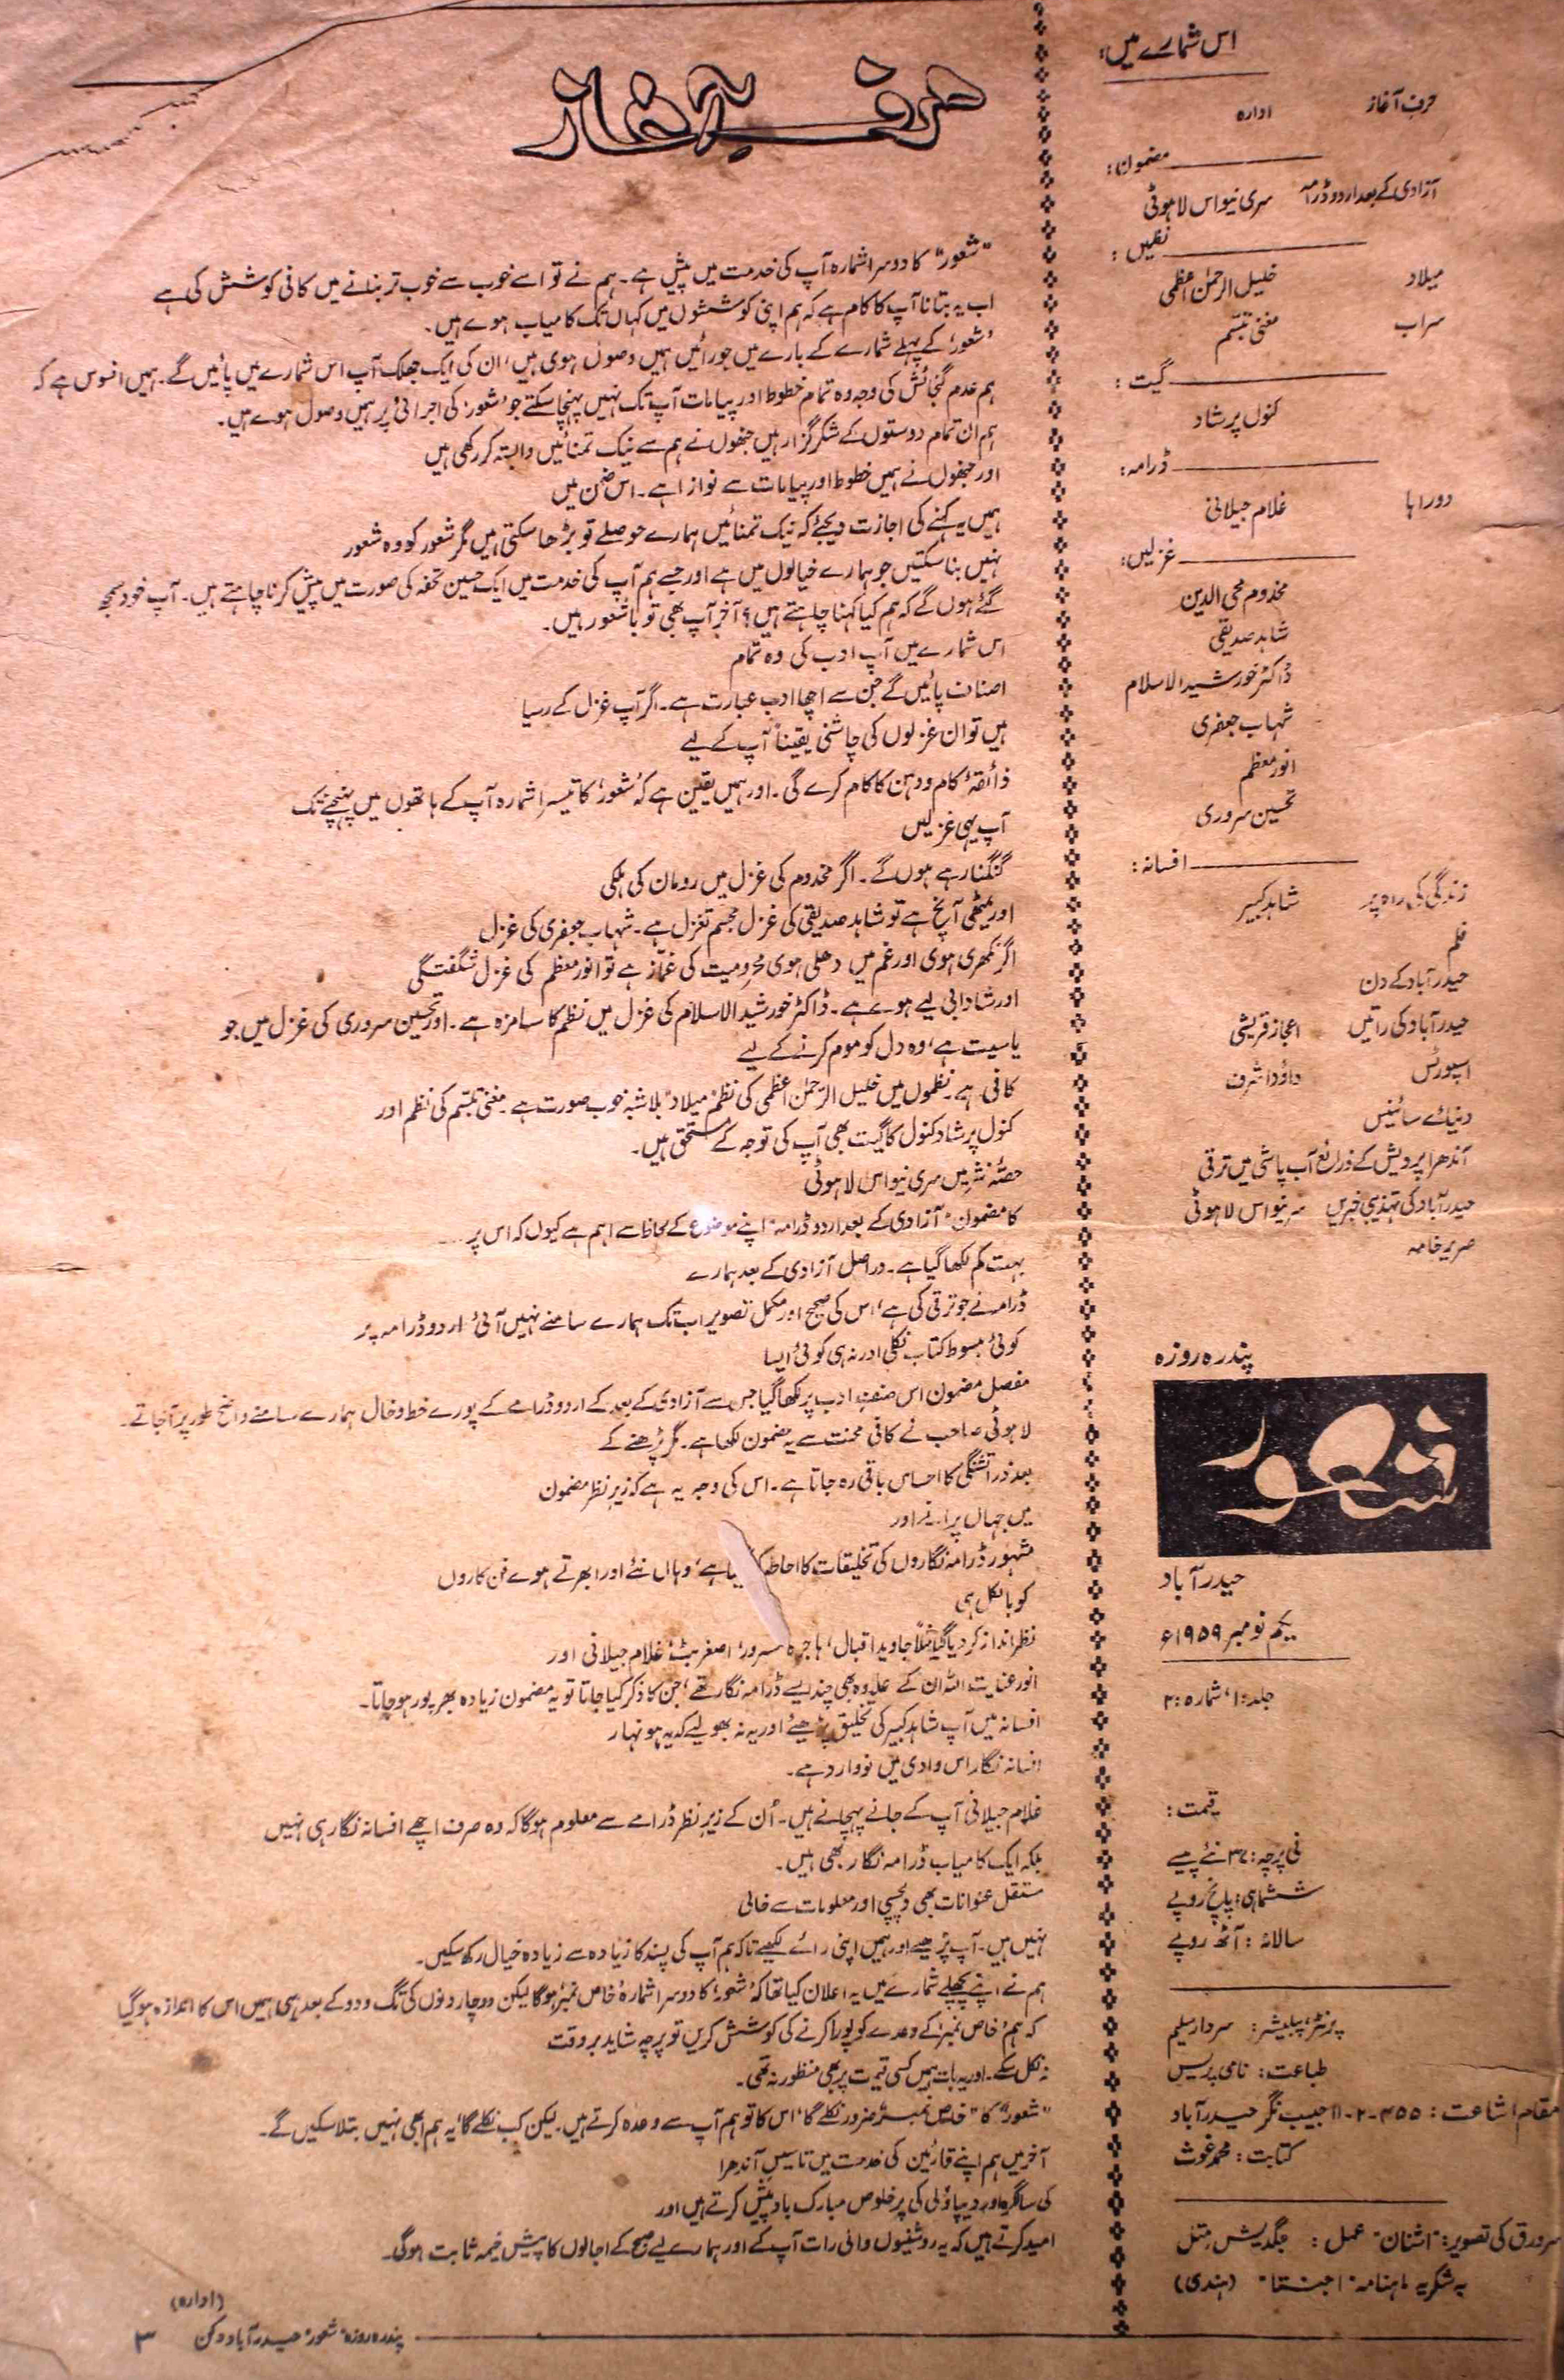 اس شمارے میں:
حرف آغاز ادارہ
مضمون:
آزادی کے بعد اردو ڈرامہ سری نیواس لاہوٹی
نظمیں:
میلاد خلیل الرحمٰن اعظمی
سراب مغنی تبسم
گیت:
کنول پرشاد
ڈرامہ:
دوراہا غلام جیلانی
غزلیں:
مخدوم محی الدین
شاہد صدیقی
ڈاکٹر خورشید الاسلام
شہاب جعفری
انور معظم
تحسین سروری
افسانہ:
زندگی کی راہ پر شاہد کبیر
فلم
حیدرآباد کے دن
حیدرآباد کی راتیں اعجاز قریشی
اسپورٹس داؤد اشرف
دنیائے سائنس
آندھرا پردیش کے ذرائع آب پاشی میں ترقی
حیدرآباد کی تہذیبی خبریں سرینواس لاہوٹی
صریر خامہ
پندرہ روزہ
شعور
حیدرآباد
یکم نومبر ۱۹۵۹ء
جلد: ۱، شمارہ: ۲
قیمت:
فی پرچہ: ۳۷ نئے پیسے
ششماہی: پانچ روپے
سالانہ: آٹھ روپے
پرنٹر، پبلیشر: سردار سلیم
طباعت: نامی پریس
مقام اشاعت: ۴۵۵-۲-۱۱ حبیب نگر حیدرآباد
کتابت: محمد غوث
سرورق کی تصویر: "اشنان" عمل: جگدیش متل
بہ شکریہ ماہنامہ "اجنتا" (ہندی)
حرفِ آغاز
"شعور" کا دوسرا شمارہ آپ کی خدمت میں پیش ہے۔ ہم نے تو اسے خوب سے خوب تر بنانے میں کافی کوشش کی ہے
اب یہ بتانا آپ کا کام ہے کہ ہم اپنی کوششوں میں کہاں تک کامیاب ہوے ہیں۔
'شعور' کے پہلے شمارے کے بارے میں جو رائیں ہمیں وصول ہوی ہیں، ان کی ایک جھلک آپ اس شمارے میں پائیں گے۔ ہمیں افسوس ہے کہ
ہم عدم گنجائش کی وجہ وہ تمام خطوط اور پیامات آپ تک نہیں پہنچا سکتے جو 'شعور' کی اجرائی پر ہمیں وصول ہوے ہیں۔
ہم ان تمام دوستوں کے شکر گزار ہیں جنھوں نے ہم سے نیک تمنائیں وابستہ کر رکھی ہیں
اور جنھوں نے ہمیں خطوط اور پیامات سے نوازا ہے۔ اس ضمن میں
ہمیں یہ کہنے کی اجازت دیجئے کہ نیک تمنائیں ہمارے حوصلے تو بڑھا سکتی ہیں مگر شعور کو وہ شعور
نہیں بنا سکتیں جو ہمارے خیالوں میں ہے اور جسے ہم آپ کی خدمت میں ایک حسین تحفہ کی صورت میں پیش کرنا چاہتے ہیں۔ آپ خود سمجھ
گئے ہوں گے کہ ہم کیا کہنا چاہتے ہیں؟ آخر آپ بھی تو باشعور ہیں۔
اس شمارے میں آپ ادب کی وہ تمام
اصناف پائیں گے جن سے اچھا ادب عبارت ہے۔ اگر آپ غزل کے رسیا
ہیں تو ان غزلوں کی چاشنی یقیناً آپ کے لیے
ذائقۂ کام و دہن کا کام کرے گی۔ اور ہمیں یقین ہے کہ 'شعور' کا تیسرا شمارہ آپ کے ہاتھوں میں پہنچنے تک
آپ یہی غزلیں
گنگنا رہے ہوں گے۔ اگر مخدوم کی غزل میں رومان کی ہلکی
اور میٹھی آنچ ہے تو شاہد صدیقی کی غزل مجسم تغزل ہے۔ شہاب جعفری کی غزل
اگر نکھری ہوی اور غم میں دھلی ہوی محرومیت کی غماز ہے تو انور معظم کی غزل شگفتگی
اور شادابی لیے ہوے ہے۔ ڈاکٹر خورشید الاسلام کی غزل میں نظم کا سا مزہ ہے۔ اور تحسین سروری کی غزل میں جو
یاسیت ہے، وہ دل کو موم کرنے کے لیے
کافی ہے۔ نظموں میں خلیل الرحمٰن اعظمی کی نظم "میلاد" بلاشبہ خوب صورت ہے۔ مغنی تبسم کی نظم اور
کنول پرشاد کنول کا گیت بھی آپ کی توجہ کے مستحق ہیں۔
حصۂ نثر میں سری نیواس لاہوٹی
کا مضمون "آزادی کے بعد اردو ڈرامہ" اپنے موضوع کے لحاظ سے اہم ہے کیوں کہ اس پر
بہت کم لکھا گیا ہے۔ دراصل آزادی کے بعد ہمارے
ڈرامہ نے جو ترقی کی ہے، اس کی صحیح اور مکمل تصویر اب تک ہمارے سامنے نہیں آئی۔ اردو ڈرامہ پر
کوئی مبسوط کتاب نکلی اور نہ ہی کوئی ایسا
مفصل مضمون اس صنف ادب پر لکھا گیا جس سے آزادی کے بعد کے اردو ڈرامے کے پورے خط و خال ہمارے سامنے واضح طور پر آجاتے۔
لاہوٹی صاحب نے کافی محنت سے یہ مضمون لکھا ہے۔ مگر پڑھنے کے
بعد ذرا تشنگی کا احساس باقی رہ جاتا ہے۔ اس کی وجہ یہ ہے کہ زیر نظر مضمون
میں جہاں پرانے اور
مشہور ڈرامہ نگاروں کی تخلیقات کا احاطہ ہے، وہاں نئے اور ابھرتے ہوے فن کاروں
کو بالکل ہی
نظر انداز کر دیا گیا مثلاً جاوید اقبال، ہاجرہ مسرور، اصغر بٹ، غلام جیلانی اور
انور عنایت اللہ ان کے علاوہ بھی چند ایسے ڈرامہ نگار تھے، جن کا ذکر کیا جاتا تو یہ مضمون زیادہ بھرپور ہو جاتا۔
افسانہ میں آپ شاہد کبیر کی تخلیق پڑھیئے اور یہ نہ بھولیے کہ یہ ہونہار
افسانہ نگار اس وادی میں نووارد ہے۔
غلام جیلانی آپ کے جانے پہچانے ہیں۔ اُن کے زیر نظر ڈرامے سے معلوم ہوگا کہ وہ صرف اچھے افسانہ نگار ہی نہیں
بلکہ ایک کامیاب ڈرامہ نگار بھی ہیں۔
مستقل عنوانات بھی دلچسپی اور معلومات سے خالی
نہیں ہیں۔ آپ پڑھیے اور ہمیں اپنی رائے لکھیے تاکہ ہم آپ کی پسند کا زیادہ سے زیادہ خیال رکھ سکیں۔
ہم نے اپنے پچھلے شمارے میں یہ اعلان کیا تھا کہ 'شعور' کا دوسرا شمارہ 'خاص نمبر' ہوگا لیکن دو چار دنوں کی تگ و دو کے بعد ہی ہمیں اس کا اندازہ ہو گیا
کہ ہم 'خاص نمبر' کے وعدے کو پورا کرنے کی کوشش کریں تو پرچہ شاید بروقت
نہ نکل سکے۔ اور یہ بات ہمیں کسی قیمت پر بھی منظور نہ تھی۔
"شعور" کا "خاص نمبر" ضرور نکلے گا، اس کا تو ہم آپ سے وعدہ کرتے ہیں۔ لیکن کب نکلے گا، یہ ہم ابھی نہیں بتلا سکیں گے۔
آخر میں ہم اپنے قارئین کی خدمت میں تاسیس آندھرا
کی سالگرہ اور دیپاؤلی کی پرخلوص مبارک باد پیش کرتے ہیں اور
امید کرتے ہیں کہ یہ روشنیوں والی رات آپ کے اور ہمارے لیے صبح کے اجالوں کا پیش خیمہ ثابت ہوگی۔
(ادارہ)
پندرہ روزہ "شعور" حیدرآباد دکن ۳